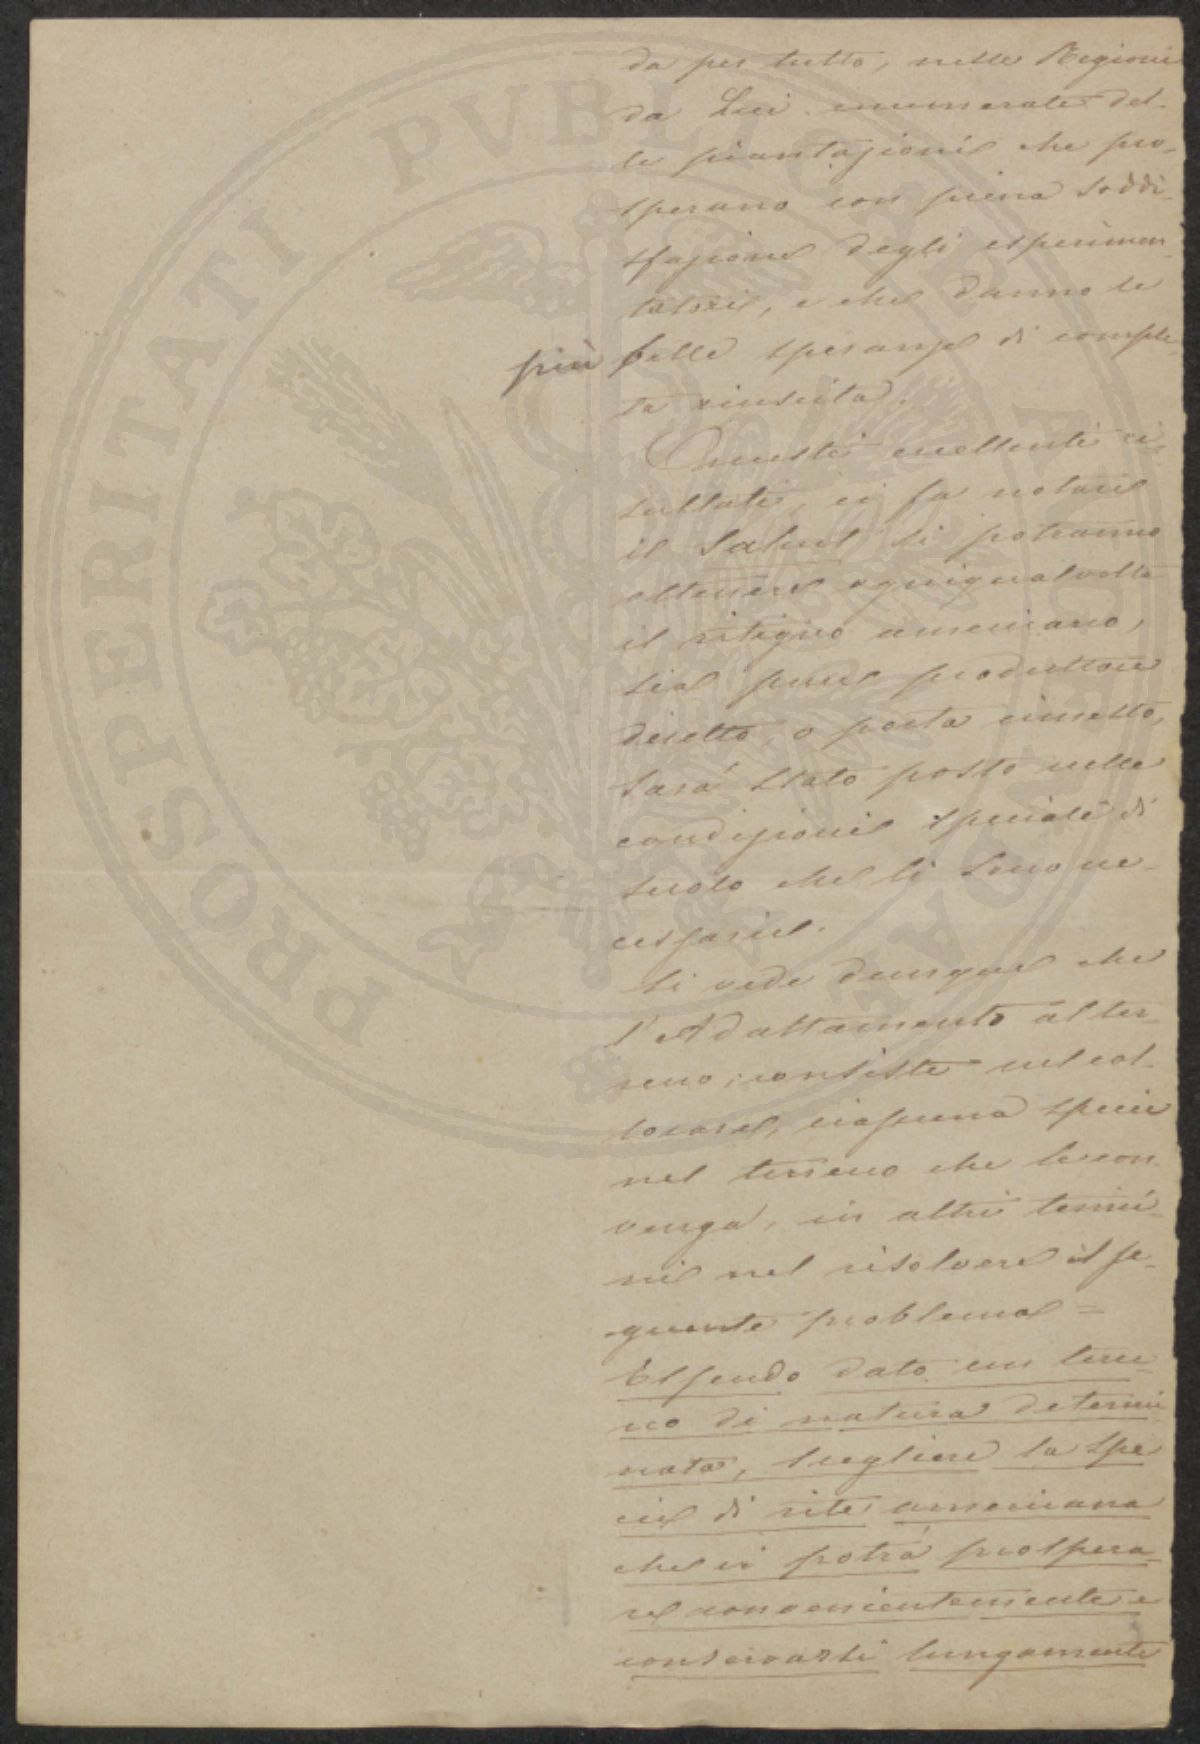 da per tutto, nelle Regioni
da Lui enumerate del-
le piantagioni che pro-
sperano con piena soddi-
sfazione degli esperimen-
tatori, e che danno le
più belle speranze di comple-
ta riuscita.
Questi eccellenti ri-
sultati, ci fa notare
il Sahut si potranno
ottenere ogniqualvolta
il vitigno americano,
sia pure produttore
diretto, o porta innesto,
sarà stato posto nelle
condizioni speciali di
suolo che li sono ne-
cessarie.
Si vede dunque che
l'Adattamento al ter-
reno, consiste nel col-
locare, ciascuna specie
nel terreno che le con-
venga, in altri termi-
ni nel risolvere il se-
guente problema =
Essendo dato un terre-
no di natura determi-
nata, scegliere la spe
cie di vite americana
che ci potrà prospera-
re convenientemente e
conservarsi lungamente
PROSPERITATI PVBLICAE AVGENDAE